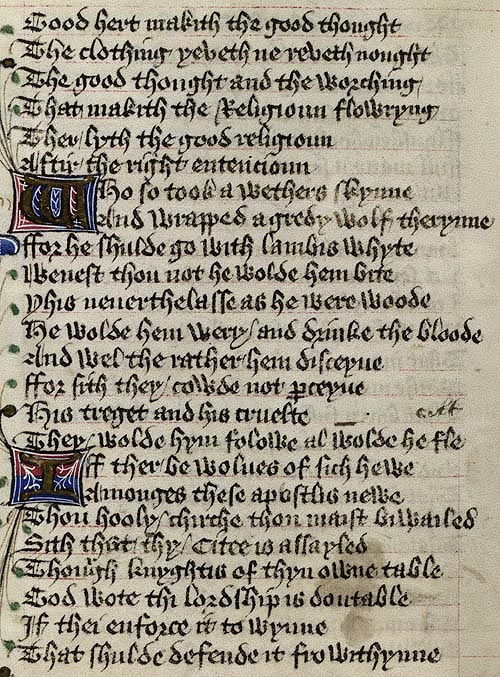 Good hert makith the good thought
The clothing yeveth ne reveth nought
The good thought and the worching
That makith the Religioun flowryng
Ther lyth the good religioun
Aftir the right entencioun
Who so took a wethers skynne
And wrapped a gredy wolf therynne
ffor he shulde go with lambis whyte
Wenest thou not he wolde hem bite
yhis neuerthelasse as he were woode
He wolde hem wery / and drinke the bloode
And wel the rather hem disceyue
ffor sith they / cowde not ꝑceyue
His treget and his cruelte
They / wolde hym folowe al wolde he fle
If ther be wolues of sich hewe
Amonges these apostlis newe
Thou hooly / chirche thou maist biwailed
Sith that thy / Citee is assayled
Though knyghtis of thyn owne table
God wote thi lordship is doutable
If thei enforce it to wynne
That shulde defende it fro withynne